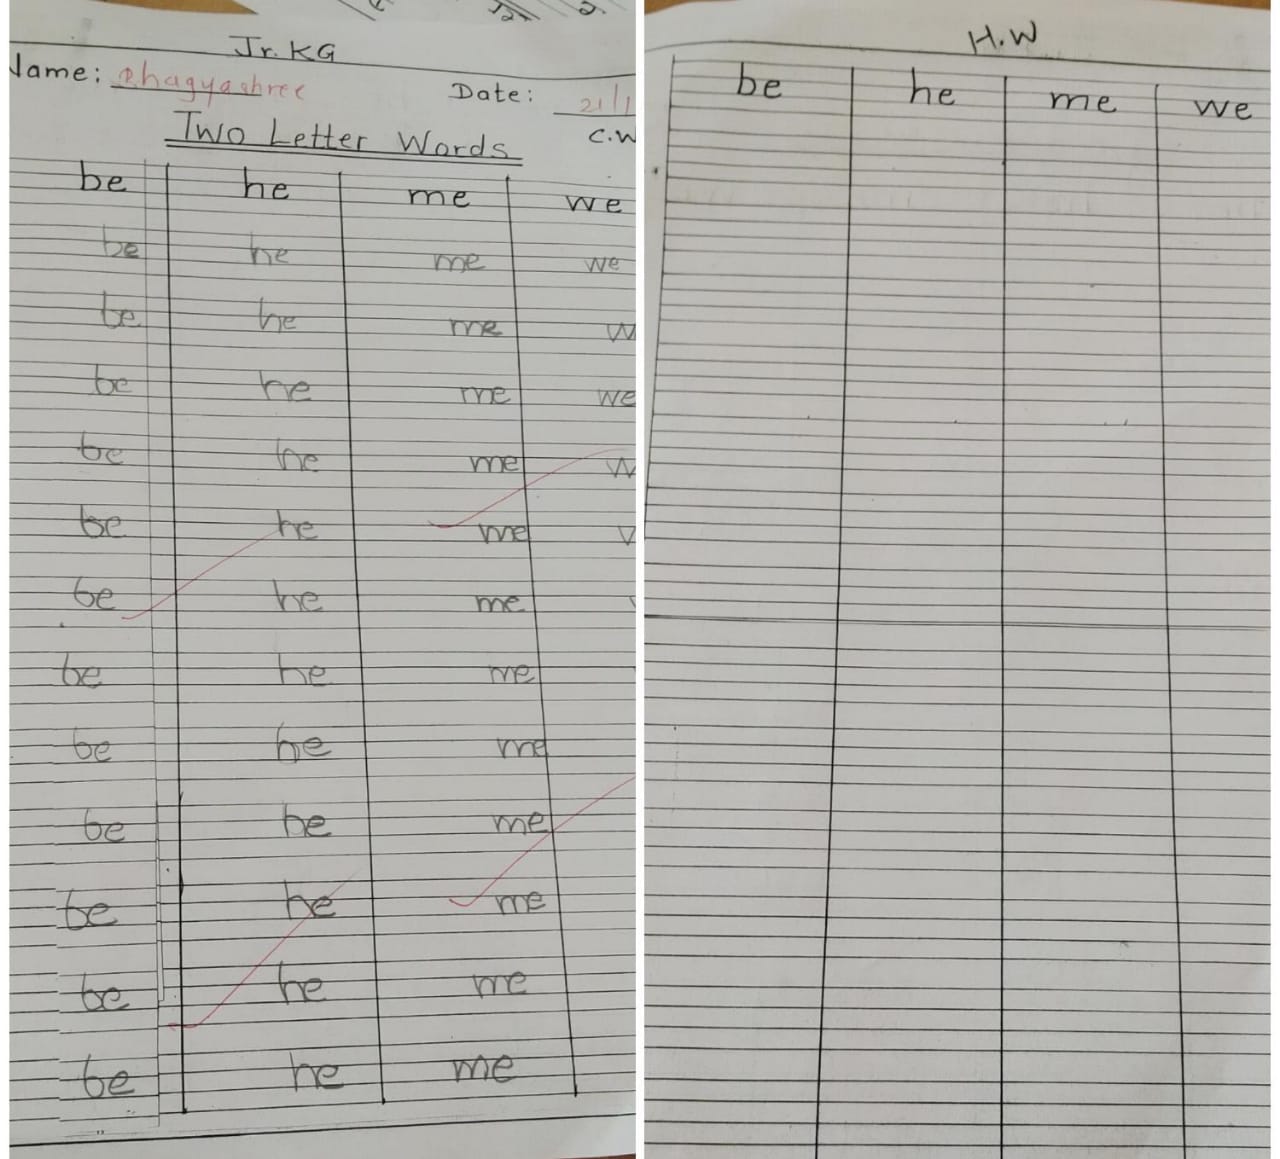 Jr. KG
Name: Bhagyashree Date: 21/1
C.W
Two Letter Words
be he me we
be he me we
be he me w
be he me we
be he me w
be he me
be he me
be he me
be he me
be he me
be he me
be he me
be he me
H.W
be he me we